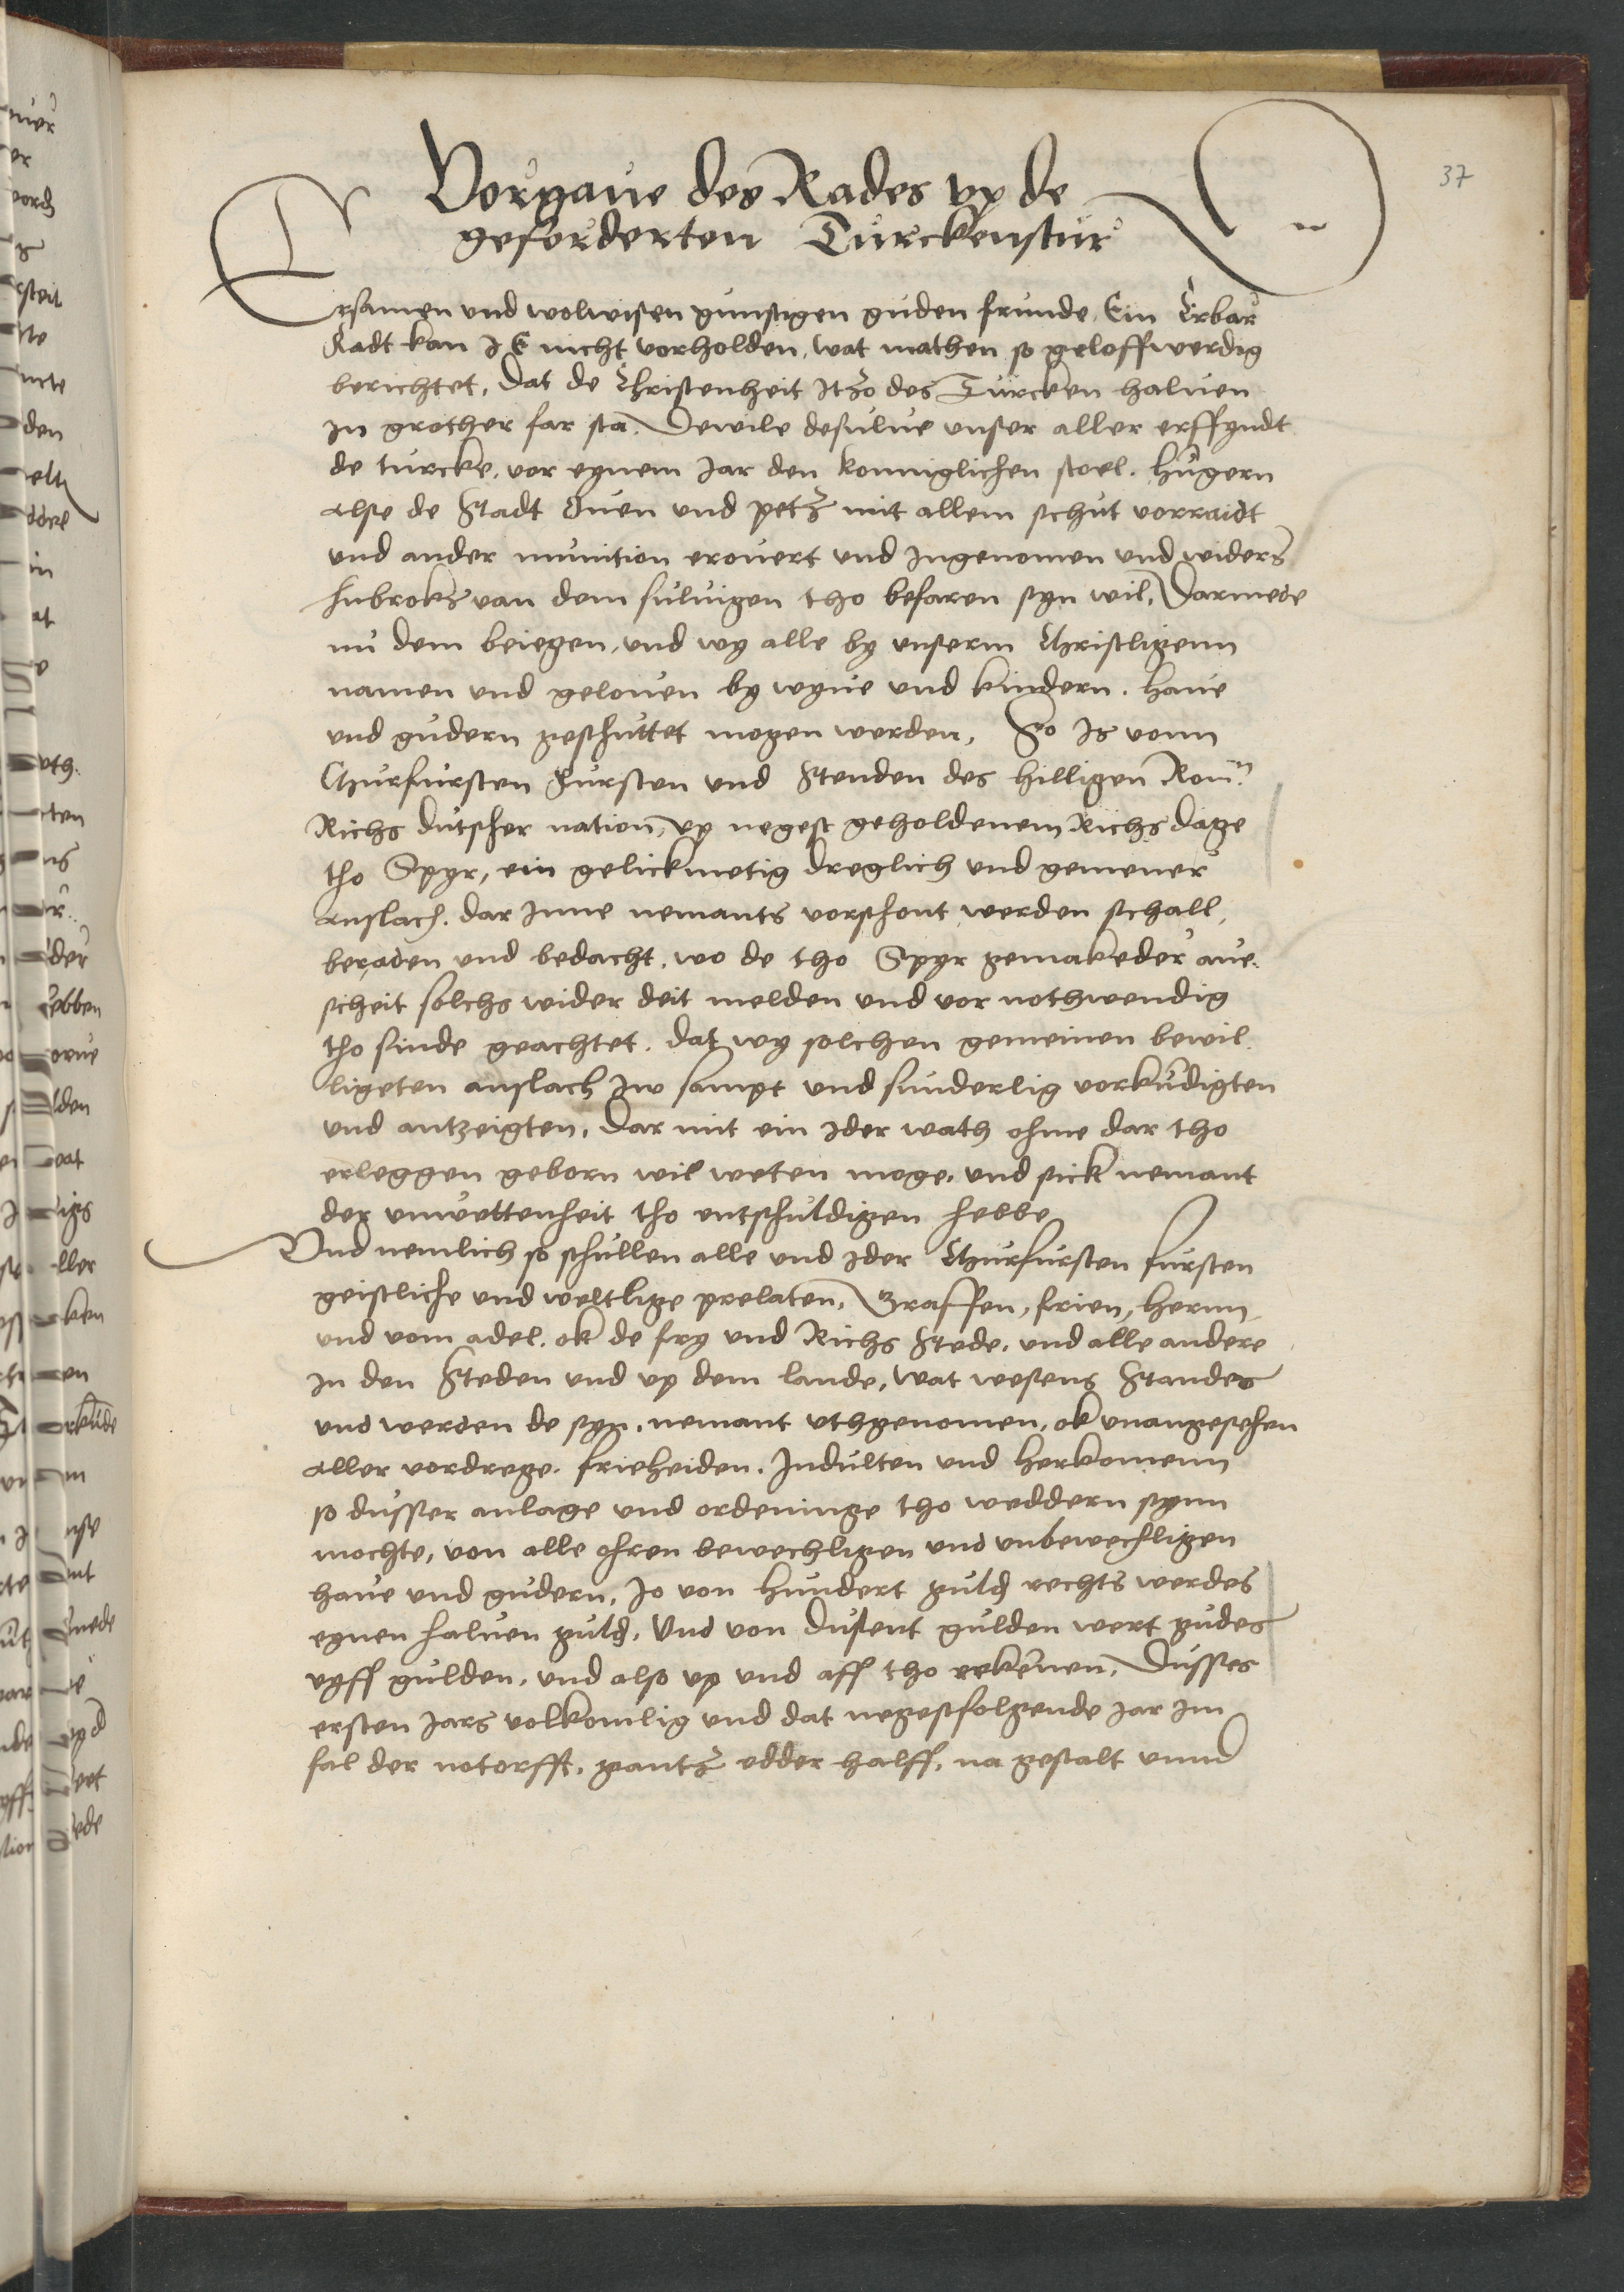 37
Vorgaue des Rades vp de
geforderten Turckenstur
Ersamen vnd wolwisen gunstigen guden frunde, Ein Erbar
Radt kan J E nicht vorholden, wat mathen so geloffwerdig
berichtet, Dat de Christenheit itzo des Turcken haluen
in grother far sta. Dewile desulue vnser aller erffyndt
de turcke, vor eynem Jar den konniglichen stoel. Hugern
alse de Stadt Ouen vnd petz mit allem schut vorraidt
vnd ander munition erouert vnd ingenomen vnd widers
Inbroks van dem suluigen tho befaren syn wil, Darmede
nu dem beiegen, vnd wy alle by vnserm Christligenn
namen vnd gelouen by wyue vnd kindern. haue
vnd gudern geschuttet mogen werden, So is vonn
Churfursten Fursten vnd Stenden des hilligen Rom.
Richs dutscher nation, vp negest geholdenem Richs dage
tho Spyr, ein gelickmetig dreglich vnd gemener
anslach. dar inne nemants vorschont werden schall,
beraden vnd bedacht. wo de tho Spyr gemakeder aue.
scheit solchs wider deit melden vnd vor nothwendig
tho sinde geachtet. dat wy solchen gemeinen bewil.
ligeten anslach iw sampt vnd sunderlig vorkudigten
vnd antzeigten, Dar mit ein ider wath ohme dar tho
erleggen geborn wil weten moge. vnd sick nemant
der vnwettenheit tho entschuldigen hebbe
Vnd nemlich so schullen alle vnd ider Churfursten fursten
geistliche vnd weltlige prelaten, Graffen, frien, hernn
vnd vom adel. ok de fry vnd Richs Stede. vnd alle andere
in den Steden vnd vp dem lande, wat wesens Standes
vnd werden de syn, nemant vthgenomen, ok vnangesehen
aller vordrege. frieheiden. Indulten vnd herkomenn
so dusser anlage vnd ordeninge tho weddern synn
mochte, von alle ohren bewechligen vnd vnbewechligen
haue vnd gudern, Jo von hundert guld rechts werdes
eynen haluen guld, Vnd von dusent gulden wert gudes
vyff gulden, vnd also vp vnd aff tho rekenen, Dusses
ersten Jars volkomlig vnd dat negestfolgende Jar im
fal der notorfft, gantz edder halff, na gestalt vnnd